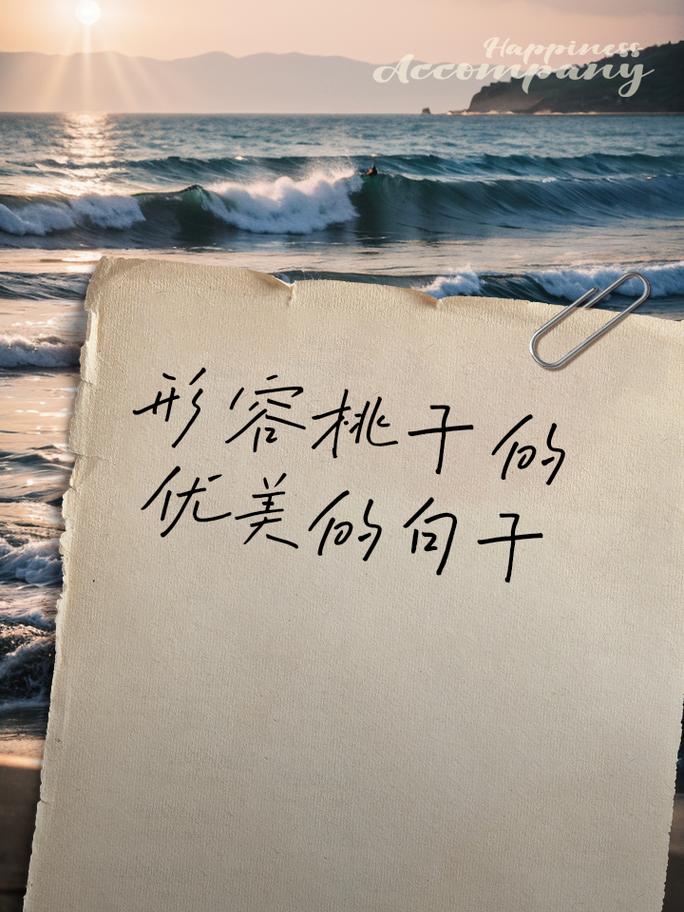 Happiness
Accompany
形容桃子的
优美的句子